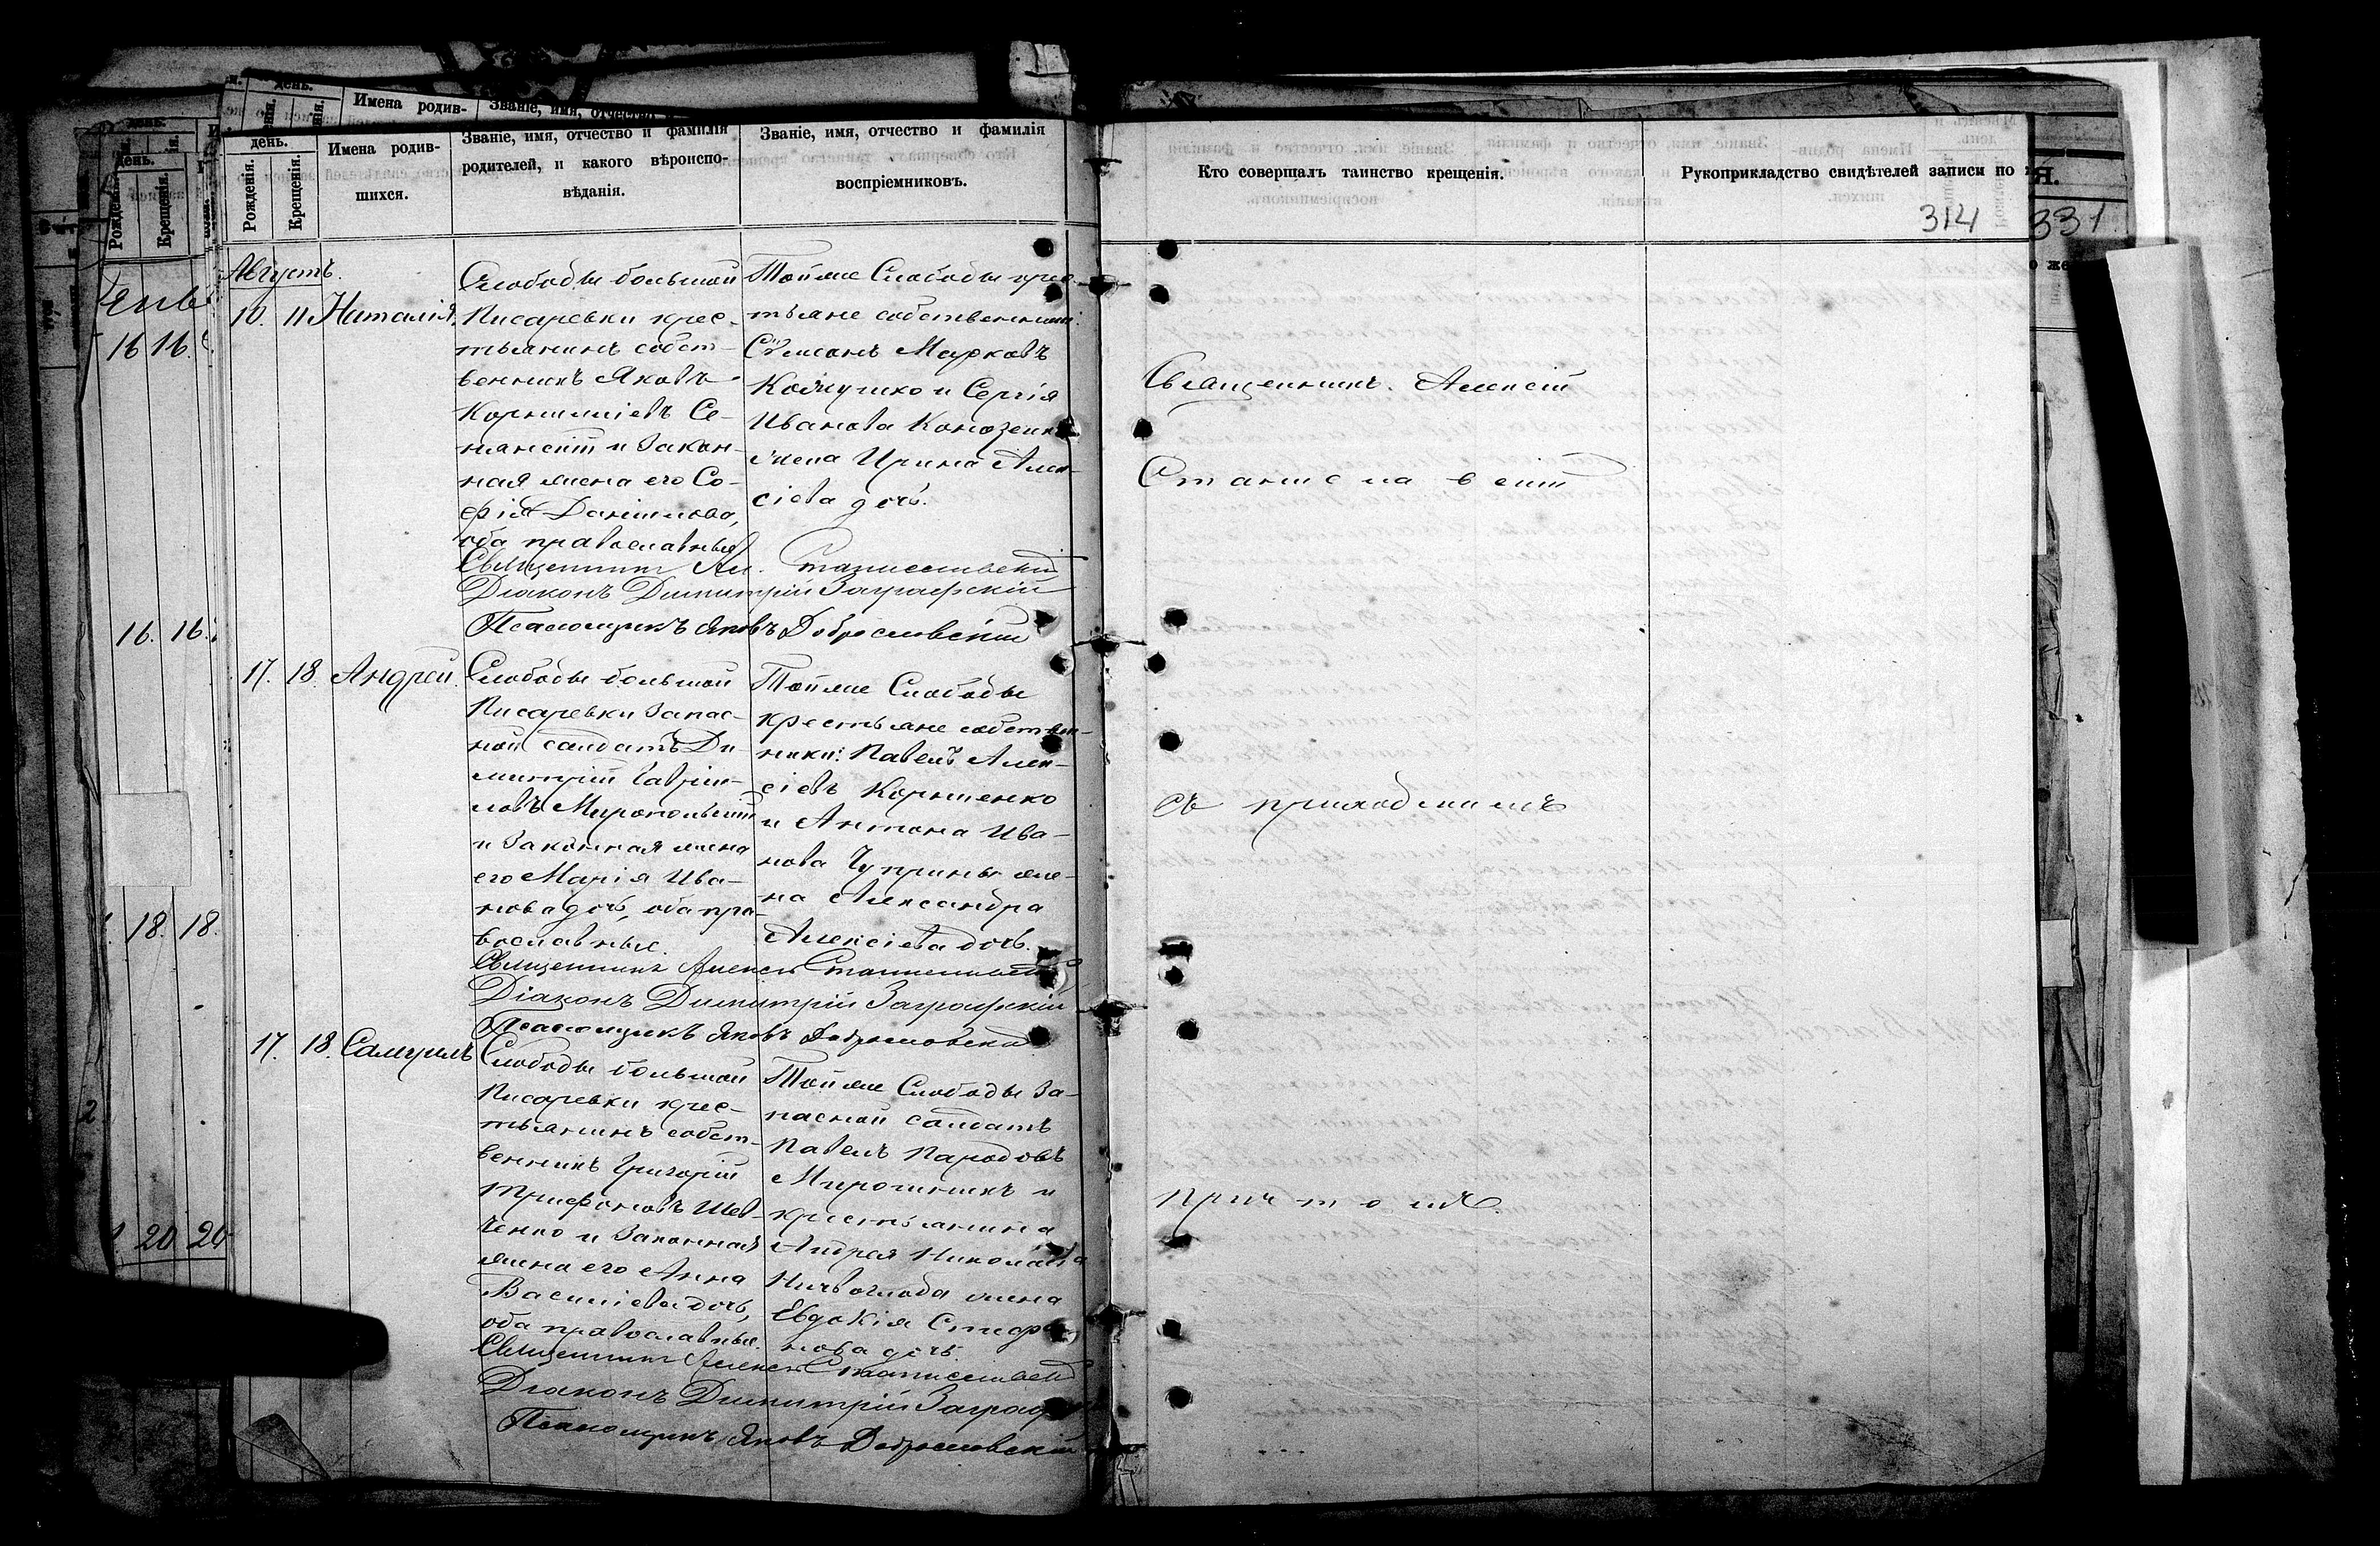 день.
Имена родив-
Званіе, имя, отчество
день.
Рожденія.
Крещенія.
Имена родив-
шихся.
Званіе, имя, отчество и фамилія
родителей, и какого вѣроиспо-
вѣданія.
Званіе, имя, отчество и фамилія
воспріемниковъ.
Августъ.
10. 11 Наталія.
Слободы большой
Писаревки крес-
тьянинъ собст-
венникъ Яковъ
Корниліевъ Се-
и закон-
ная жена его Со-
фія Даніилова,
оба православные
Тойже Слободы крес-
тьяне собственники:
Марковъ
и Сергія
Иванова
жена Ирина Алек-
сіева дочь.
Священникъ Ал. Станиславскій
Діаконъ Димитрій Заграфскій
Псаломщикъ Яковъ Доброславскій
17. 18. Андрей.
Слободы большой
Писаревки запас-
ной солдатъ Ди-
митрій Гавріи-
ловъ Миропольскій
и законная жена
его Марія Ива-
нова дочь, оба пра-
вославные.
Тойже Слободы
крестьяне собствен-
ники: Павелъ Алек-
сіевъ Корніенко
и Антона Ива-
нова Чуприны же-
на Александра
Алексіева дочь.
Священникъ Алексій Станиславскій
Діаконъ Димитрій Заграфскій
Псаломщикъ Яковъ Доброславскій
17. 18. Самуилъ
Слободы большой
Писаревки крес-
тьянинъ собст-
венникъ Григорій
Трифоновъ Шев-
ченко и законная
жена его Анна
Васильева дочь,
оба православные.
Тойже Слободы за-
пасной солдатъ
Павелъ
Мирошникъ и
крестьянина
Андрея Николаева
жена
Евдокія Стефа-
нова дочь.
Священникъ Алексій Станиславскій
Діаконъ Димитрій Заграфскій
Псаломщикъ Яковъ Доброславскій
16 16.
16. 16.
18. 18.
20 20
Кто совершалъ таинство крещенія.
Рукоприкладство свидѣтелей записи по
314
331
Священникъ Алексій
Станиславскій
съ приходскимъ
причтомъ.